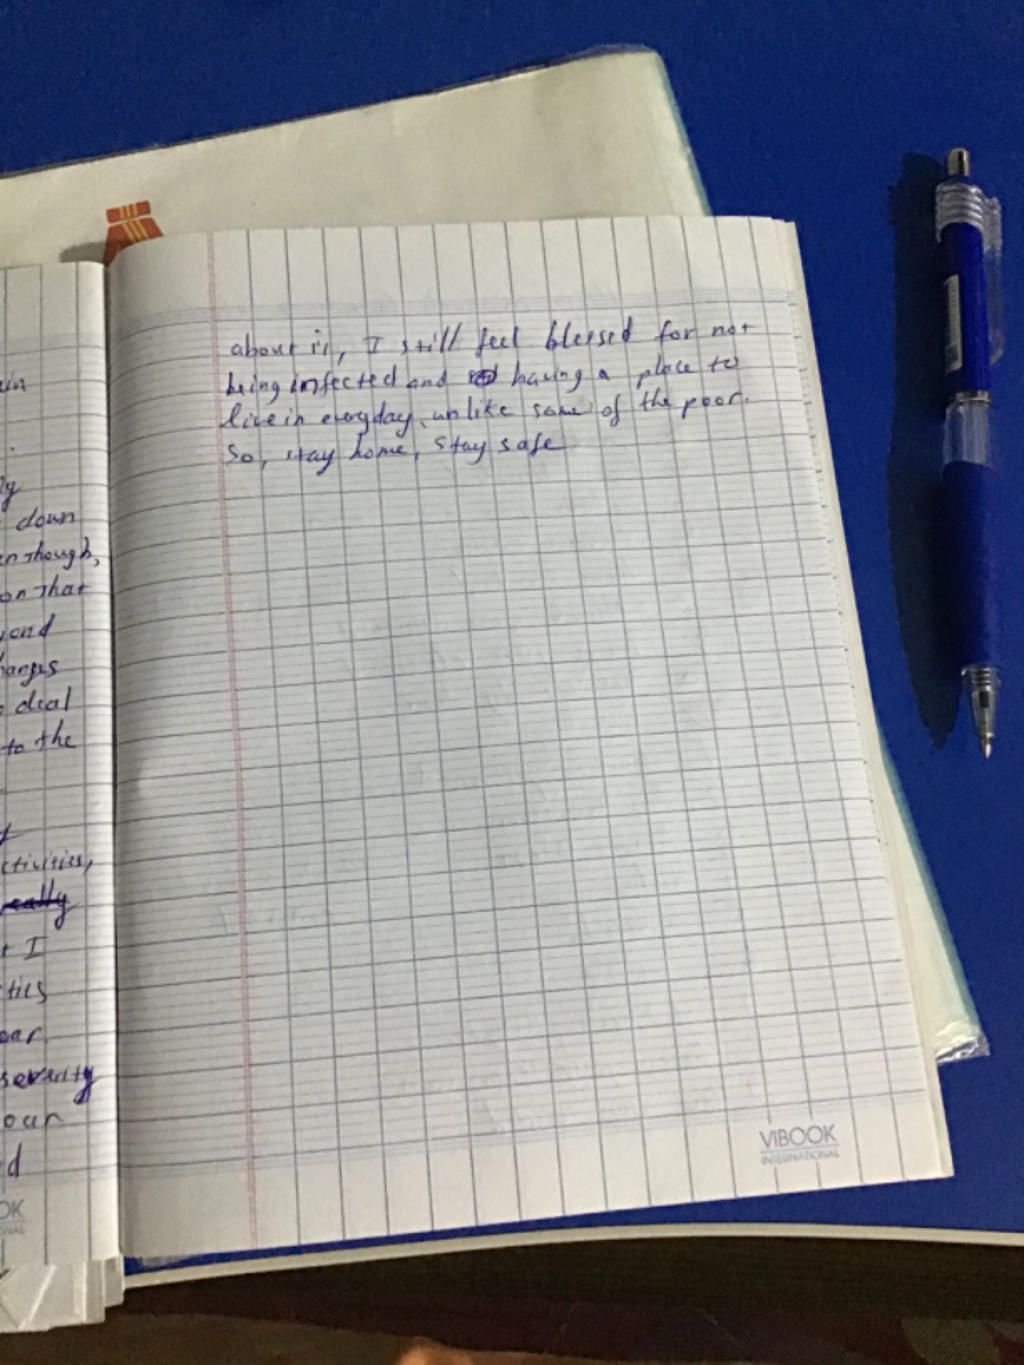 ain
.
ly
down
en though,
on that
yond
hanges
deal
to the
ctivities,
really
t I
tics
ear.
severity
our
d
OK
IONAL
about it, I still feel blessed for not
being infected and having a place to
live in everyday, unlike some of the poor.
So, stay home, stay safe
VIBOOK
INTERNATIONAL